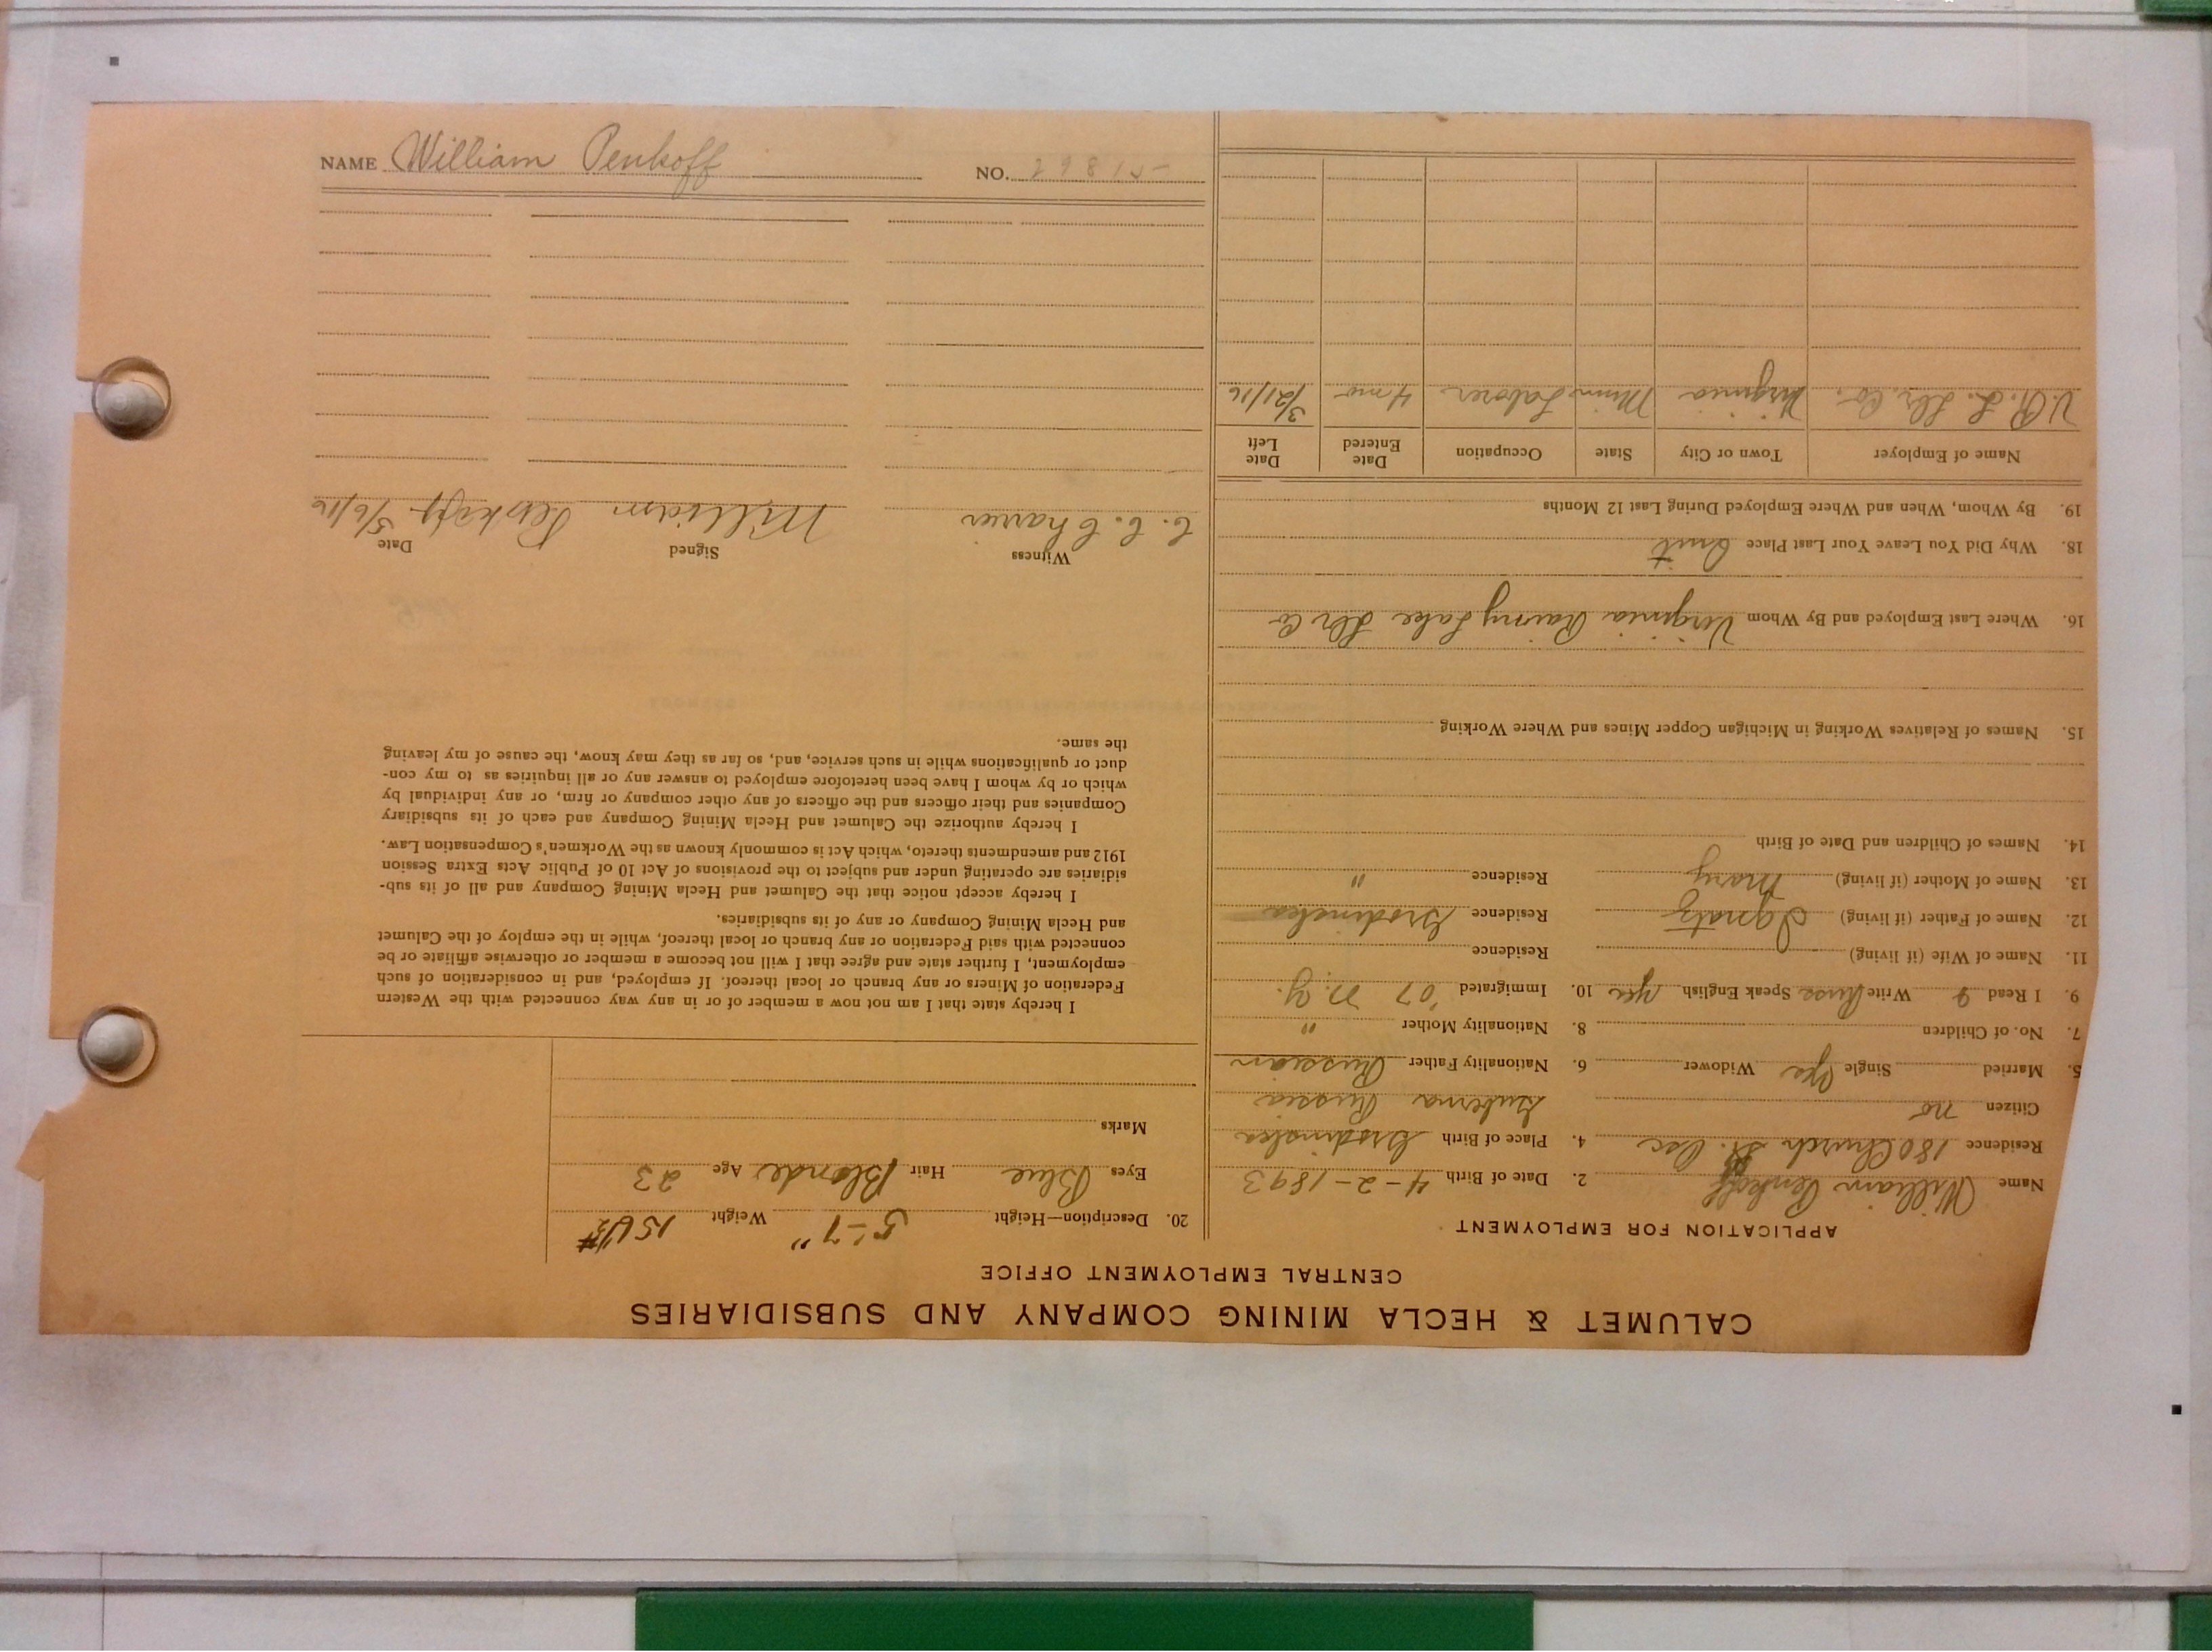 CALUMET & HECLA MINING COMPANY AND SUBSIDIARIES
CENTRAL EMPLOYMENT OFFICE
APPLICATION FOR EMPLOYMENT
Name William Penkoff 2. Date of Birth 4-2-1893
Residence 180 Church St. 4. Place of Birth Grodinska
Citizen no Guberna Russia
5. Married Single Yes Widower 6. Nationality Father Russian
7. No. of Children 8. Nationality Mother "
9. I Read & Write Russ Speak English yes 10. Immigrated '07 N.Y.
11. Name of Wife (if living) Residence
12. Name of Father (if living) Ignatz Residence Grodinska
13. Name of Mother (if living) Mary Residence "
14. Names of Children and Date of Birth
15. Names of Relatives Working in Michigan Copper Mines and Where Working
16. Where Last Employed and By Whom Virginia Rainy Lake Lbr Co
18. Why Did You Leave Your Last Place Quit
19. By Whom, When and Where Employed During Last 12 Months
Name of Employer Town or City State Occupation Date Entered Date Left
V. R. L. Lbr. Co. Virginia Minn Laborer 4 mo 3/21/16
20. Description—Height 5'-7" Weight
Eyes Blue Hair Blonde Age 23
Marks
I hereby state that I am not now a member of or in any way connected with the Western
Federation of Miners or any branch or local thereof. If employed, and in consideration of such
employment, I further state and agree that I will not become a member or otherwise affiliate or be
connected with said Federation or any branch or local thereof, while in the employ of the Calumet
and Hecla Mining Company or any of its subsidiaries.
I hereby accept notice that the Calumet and Hecla Mining Company and all of its sub-
sidiaries are operating under and subject to the provisions of Act 10 of Public Acts Extra Session
1912 and amendments thereto, which Act is commonly known as the Workmen's Compensation Law.
I hereby authorize the Calumet and Hecla Mining Company and each of its subsidiary
Companies and their officers and the officers of any other company or firm, or any individual by
which or by whom I have been heretofore employed to answer any or all inquiries as to my con-
duct or qualifications while in such service, and, so far as they may know, the cause of my leaving
the same.
Witness Signed Date
C. C. Charrier William Penkoff 5/6/16
NAME William Penkoff NO. 29815